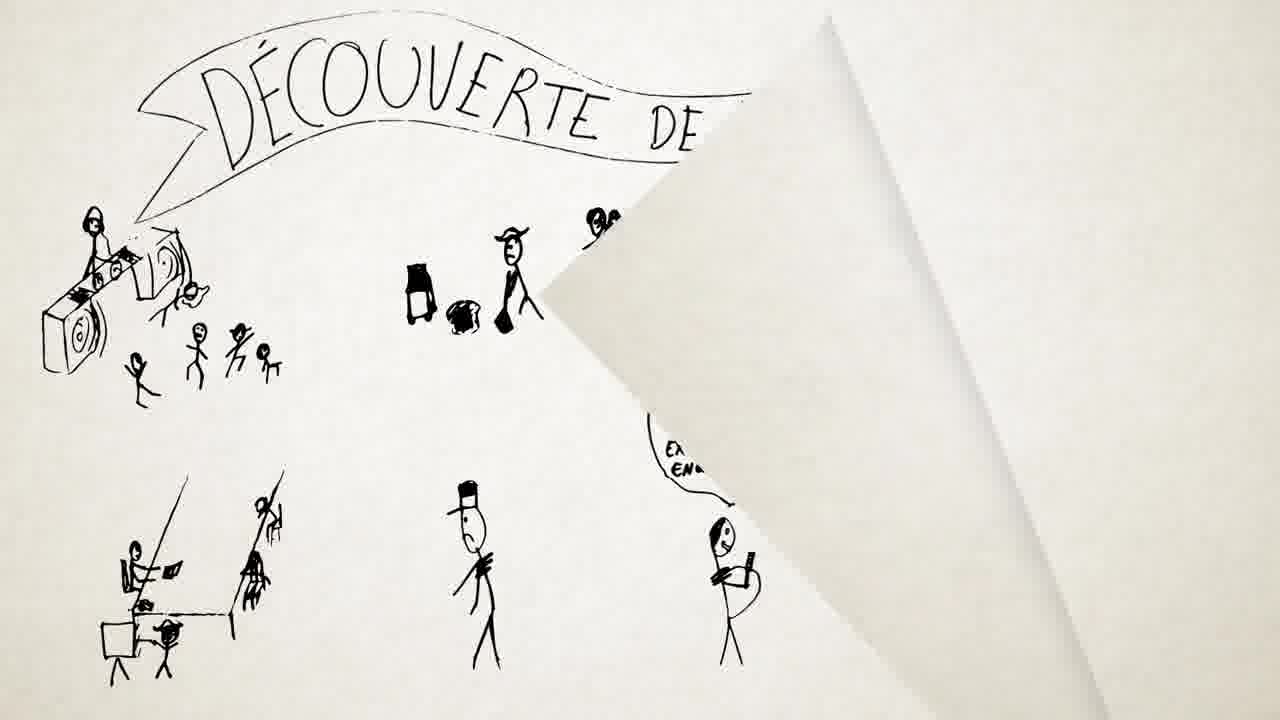 DÉCOUVERTE DE
EX
EN